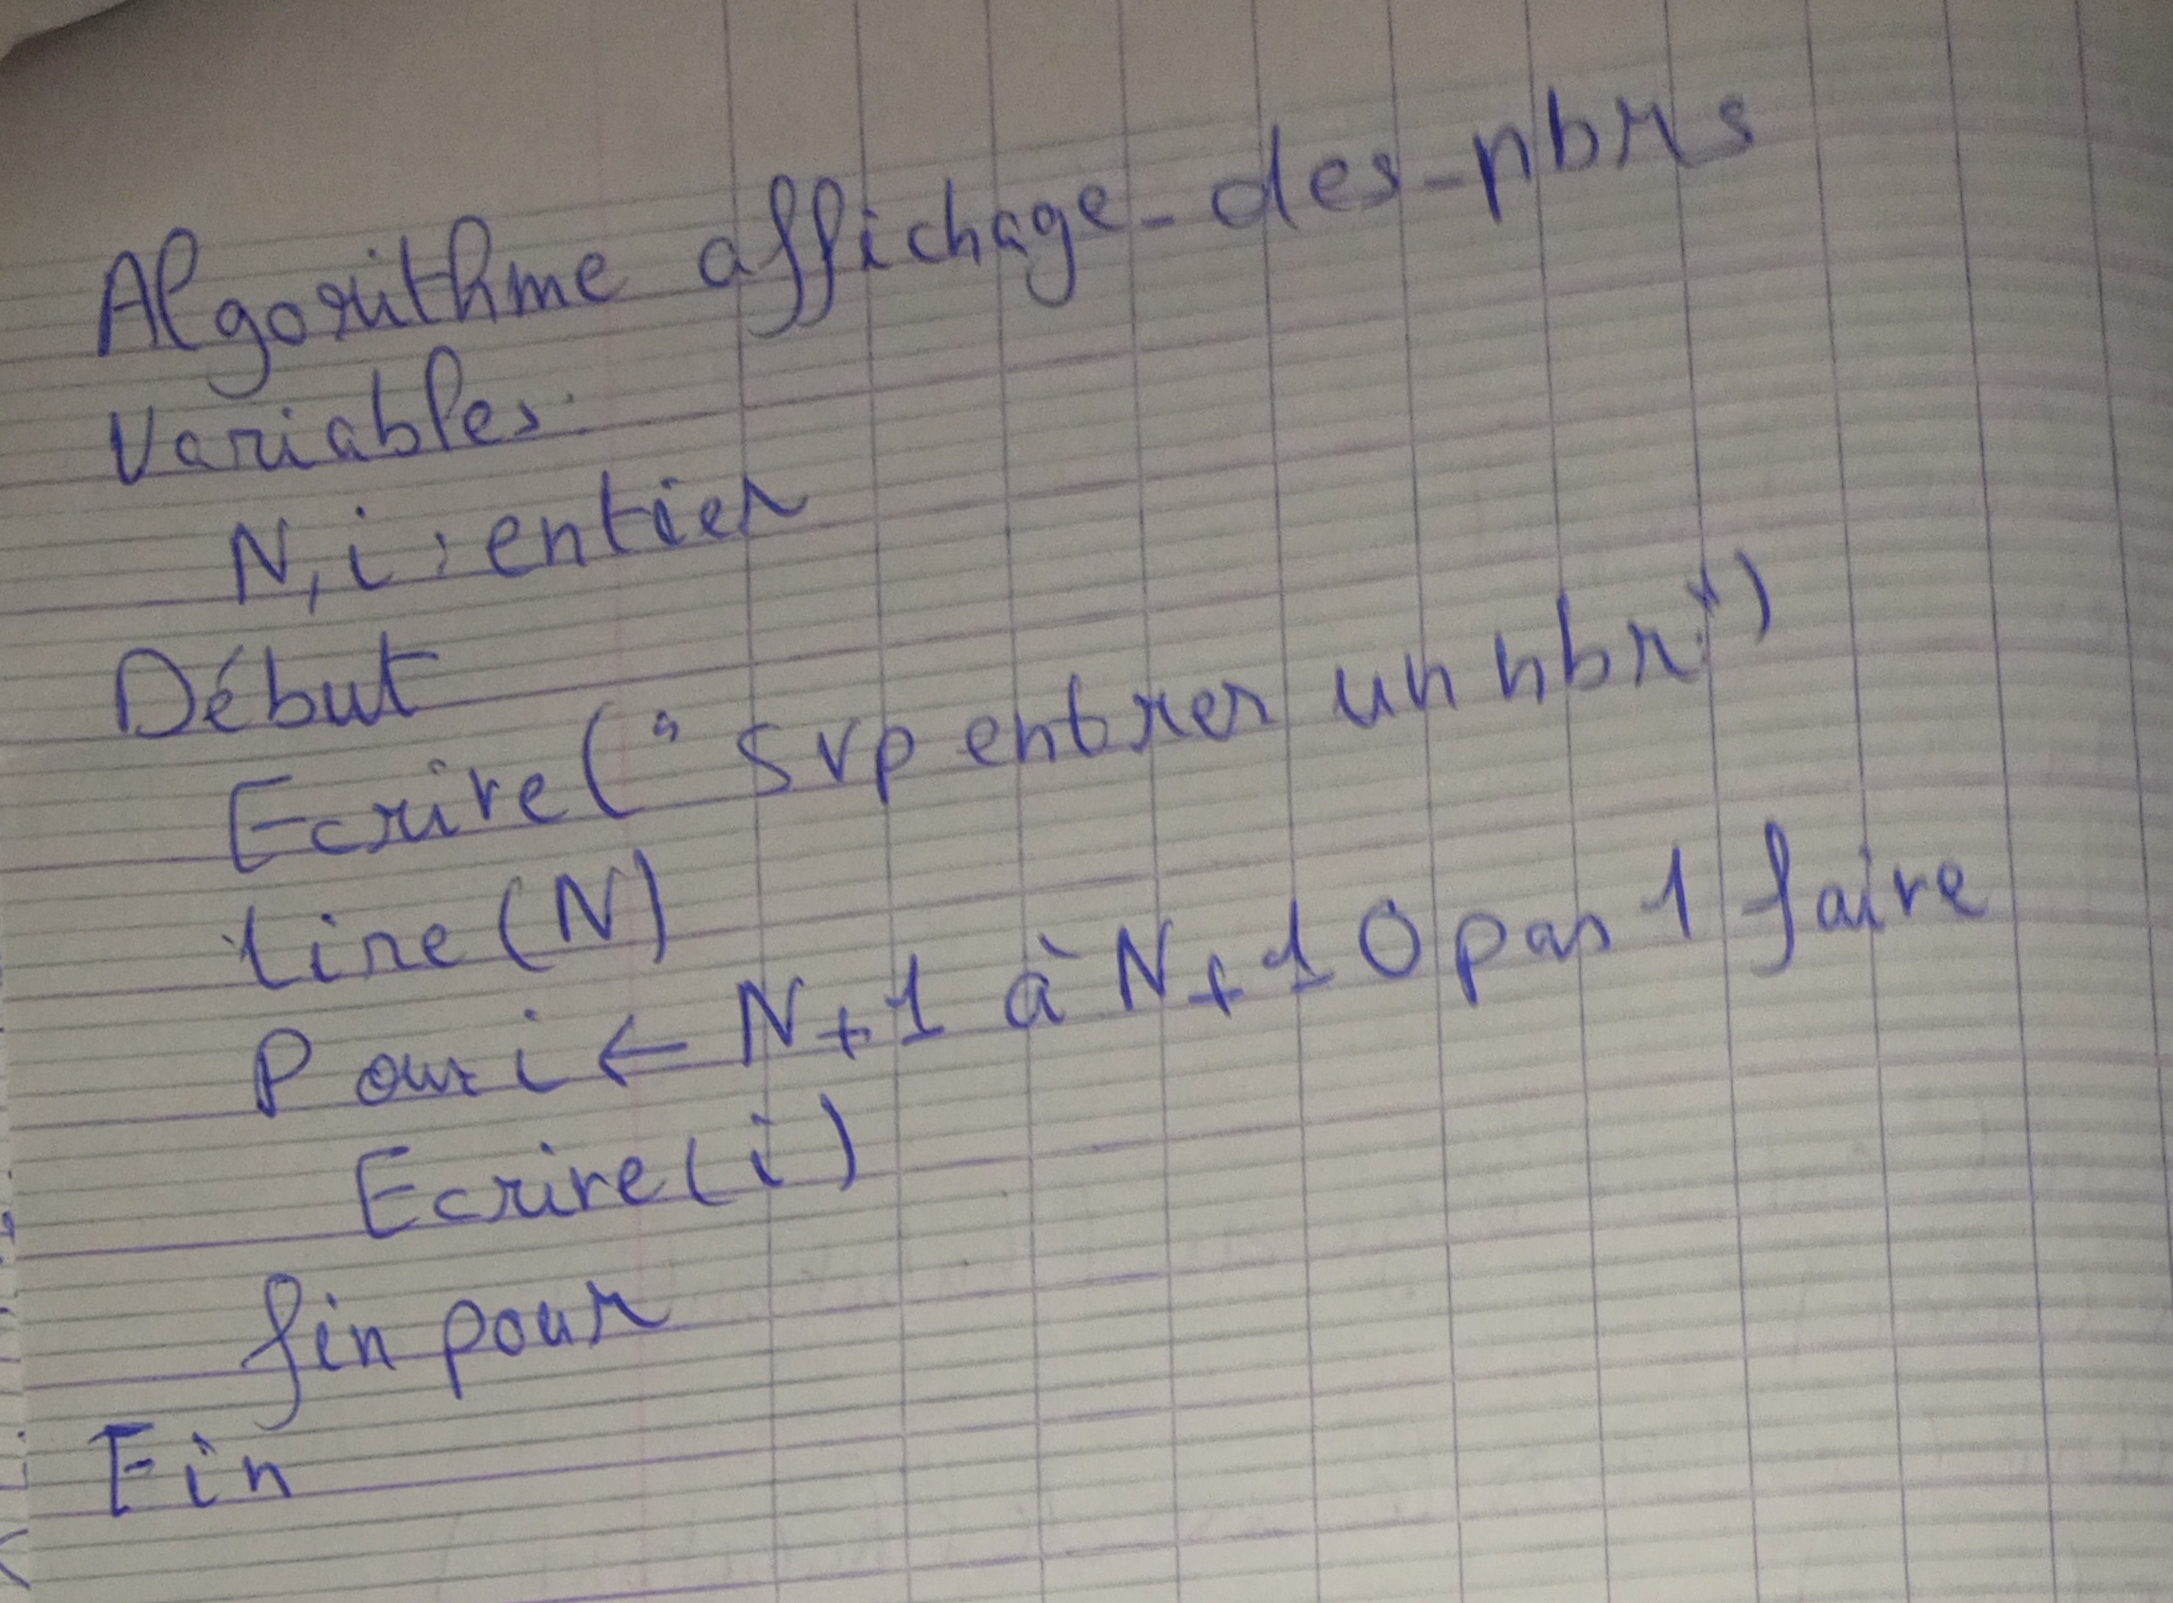 Algorithme affichage-des-nbrs
Variables:
N, i : entier
Début
Ecrire ("svp entrer un nbr")
Lire (N)
Pour i ← N+1 à N+10 pas 1 faire
Ecrire (i)
fin pour
Fin